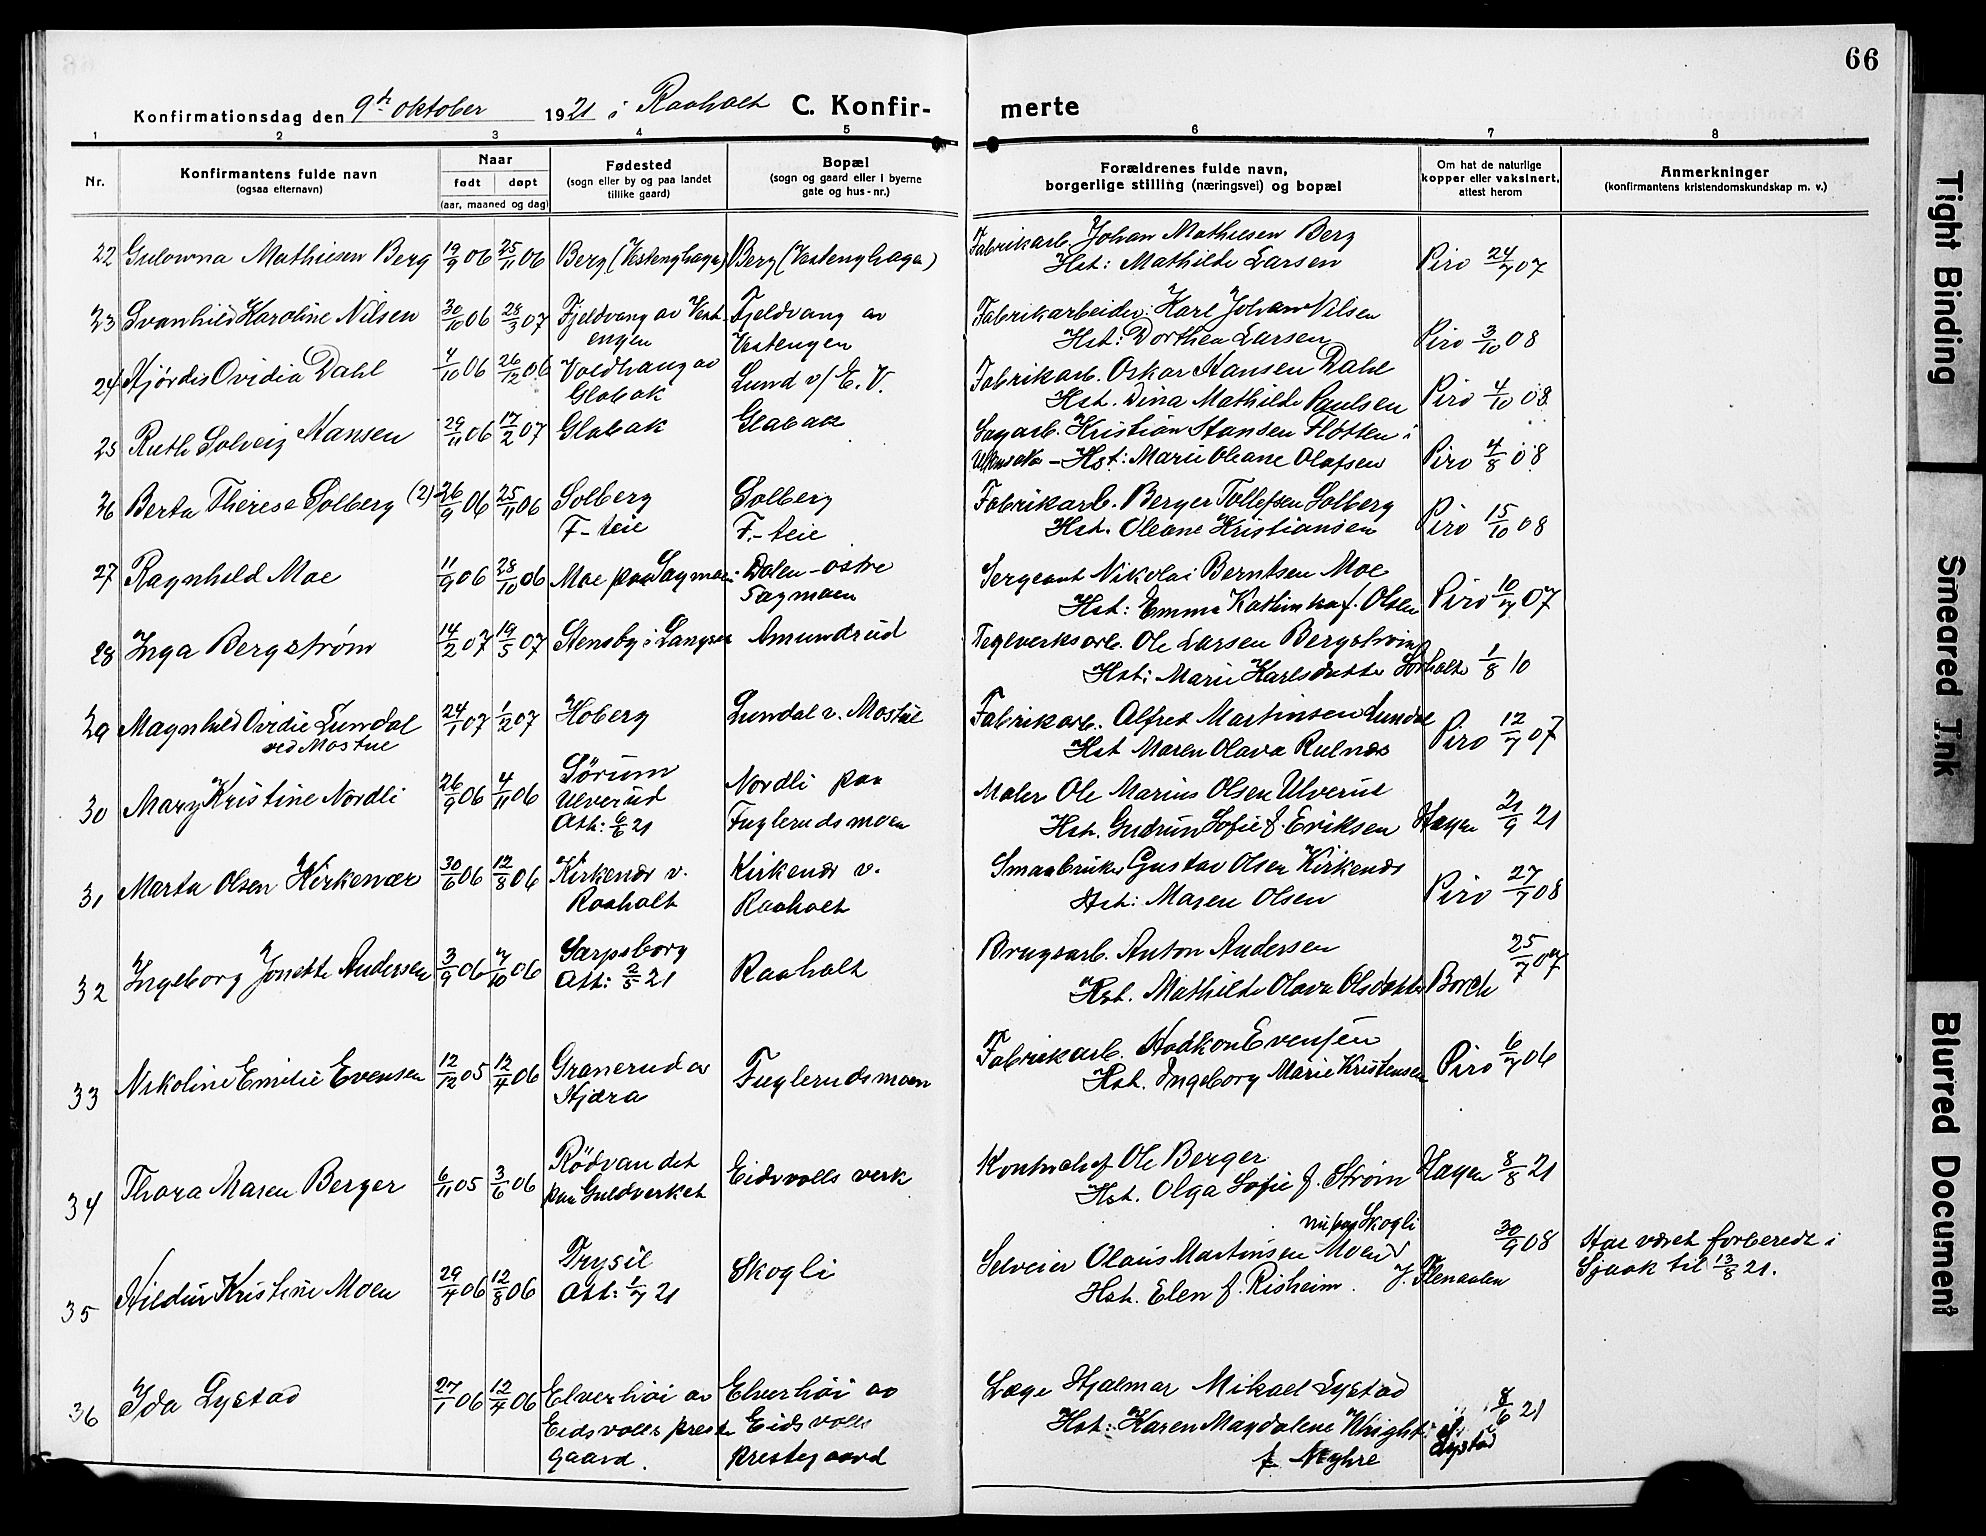 66
Konfirmationsdag den 9de oktober 1921 i Raaholt C. Konfir-
merte
1 2 3 4 5 6 7 8
Nr.
Konfirmantens fulde navn
(ogsaa efternavn)
Naar
født døpt
(aar, maaned og dag)
Fødested
(sogn eller by og paa landet
tillike gaard)
Bopæl
(sogn og gaard eller i byerne
gate og hus-nr.)
Forældrenes fulde navn,
borgerlige stilling (næringsvei) og bopæl
Om hat de naturlige
kopper eller vaksinert,
attest herom
Anmerkninger
(konfirmantens kristendomskundskap m. v.)
22 Gulowna Mathiesen Berg 19/9 06 25/11 06 Berg (Vestenghagen) Berg (Vestenghagen) Fabrikarb. Johan Mathiesen Berg
Hst: Mathilde Larsen Piro 24/7 07
23 Svanhild Karoline Nilsen 30/10 06 28/3 07 Fjeldvang av Vest- Fjeldvang av Fabrikarbeider Karl Johan Nilsen
engen Vestengen Hst: Dorthea Larsen Piro 3/10 08
24 Hjørdis Ovidia Dahl 4/10 06 26/12 06 Voldhaug av Lund v/ E. V. Fabrikarb. Oskar Hansen Dahl
Globak Hst. Dina Mathilde Paulsen Piro 4/10 08
25 Ruth Solveig Hansen 29/11 06 17/2 07 Globak Globak Sagarb. Kristian Hansen Fløtten i
Ullensaker - Hst: Marie Oleane Olafsen Piro 4/8 08
26 Berta Therese Solberg (2) 26/9 06 25/11 06 Solberg Solberg Fabrikarb. Berger Tollefsen Solberg
F-teie F.-teie Hst. Oleane Kristiansen Piro 15/10 08
27 Ragnhild Moe 11/9 06 28/10 06 Moe paa Sagmoen Dalen-østre Sergeant Nikolai Berntsen Moe
Sagmoen Hst: Emma Kathinka f. Olsen Piro 10/7 07
28 Inga Bergstrøm 14/2 07 19/5 07 Stensby i Langset Amundrud Teglverksarb. Ole Larsen Bergstrøm
Hst: Marie Karlsdatter Sørholte 1/8 10
29 Magnhild Ovidie Lundal 24/1 07 1/2 07 Hoberg Lundal v. Mostue Fabrikarb. Alfred Martinsen Lundal
ved Mostue Hst Maren Olava Rulnæs Piro 12/7 07
30 Mary Kristine Nordli 26/9 06 4/11 06 Sørum Nordli paa Maler Ole Marius Olsen Ulverud
Ulverud
Att: 6/6 21 Fuglerudsmoen Hst. Gudrun Sofie f. Eriksen Hagen 21/9 21
31 Marta Olsen Kirkenær 30/6 06 12/8 06 Kirkenær v. Kirkenær v. Smaabruker Gustav Olsen Kirkenær
Raaholt Raaholt Hst: Maren Olsen Piro 27/7 08
32 Ingeborg Jonette Andersen 3/9 06 7/10 06 Sarpsborg Raaholt Brugsarb. Anton Andersen 25/7 07
Att: 2/5 21 Hst. Mathilde Olava Olsdatter Borch
33 Nikoline Emilie Evensen 12/12 05 12/4 06 Granerud av Fuglerudsmoen Fabrikarb. Haakon Evensen
Hjæra Hst. Ingeborg Marie Kristensen Piro 6/7 06
34 Thora Maren Berger 6/11 05 3/6 06 Rödvandet Eidsvolls verk Kontorchef Ole Berger
paa Guldverket Hst. Olga Sofie f. Strøm Hagen 8/8 21
nu paa Skogli
35 Hildur Kristine Moen 29/4 06 12/8 06 Trysil Skogli Selveier Olaus Martinsen Moen 30/9 08 Har været forberedt i
Att: 1/7 21 Hst. Elen f. Risheim. J. Flenaalen Sjaak til 13/8 21.
36 Ida Lystad 27/1 06 12/4 06 Elverhöi av Elverhöi av Læge Hjalmar Mikael Lystad 8/6 21
Eidsvolls preste- Eidsvolls Hst: Karen Magdalene Wright
gaard. prestegaard f. Neyhre Lystad
Tight Binding
Smeared Ink
Blurred Document